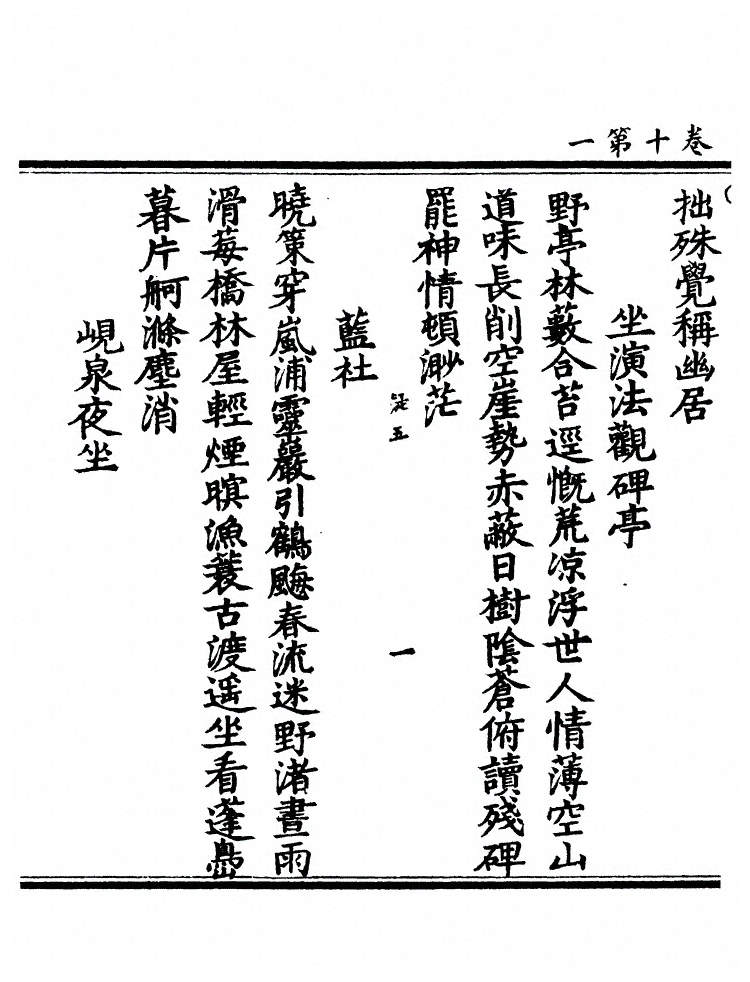 卷十第一
拙殊覺稱幽居
坐演法觀碑亭
野亭林藪合苔逕慨荒凉浮世人情薄空山
道味長削空崖勢赤蔽日樹陰蒼俯讀殘碑
罷神情頓渺茫
五 一
藍社
曉策穿嵐浦靈巖引鶴飈春流迷野渚晝雨
滑莓橋林屋輕煙暝漁蓑古渡遥坐看蓬島
暮片舸滌塵消
峴泉夜坐